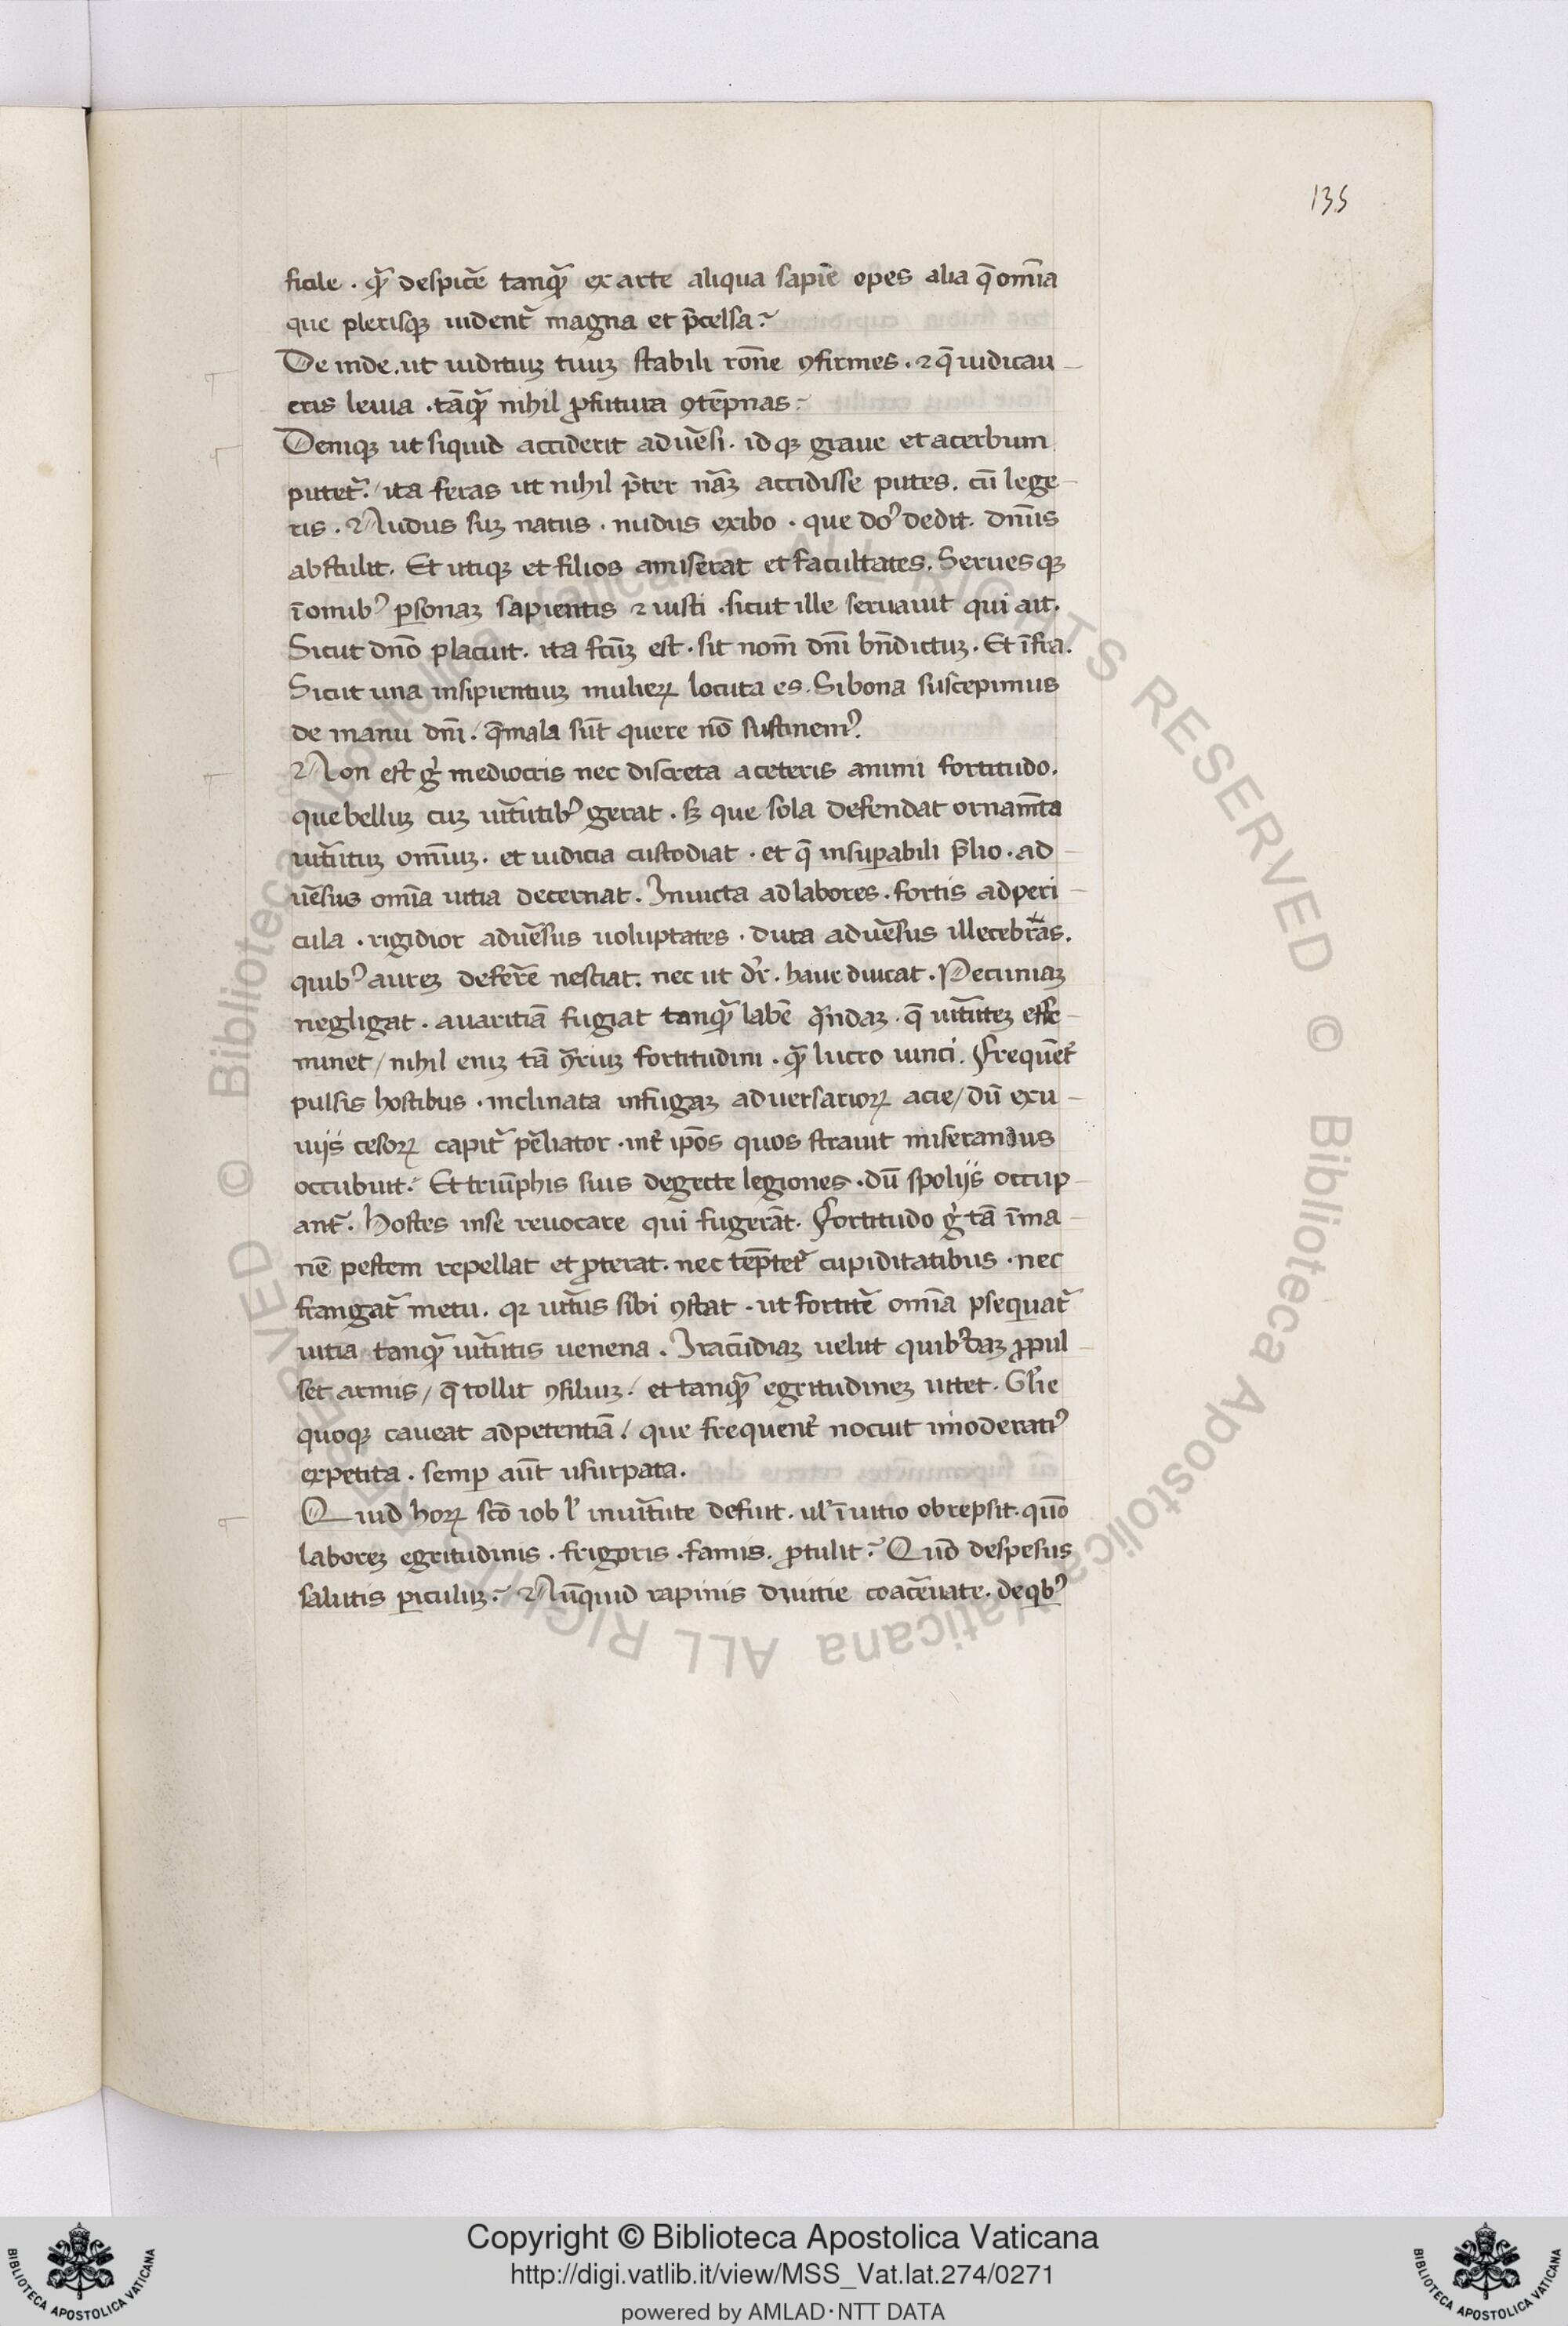 135
ficile . qͣ̄ despicē tanqͣ̄ ex arte aliqua sapiē opes alia q̄ omīa
que plerisqꝫ uidentᷣ magna et p̄celsa?
De inde . ut iudiciuꝫ tuuꝫ stabili rōne ꝯfirmes . ⁊ q̄ iudicau
eris leuia . tāqͣ̄ nihil ꝓfutura ꝯtēpnas.
Deniqꝫ ut siquid acciderit aduēsi . id qꝫ graue et acerbum
putetᷣ . / ita feras ut nihil p̄ter nāꝫ accidisse putes . cū lege
ris . Nudus suꝫ natus . nudus exibo . que doꝰ dedit . dnūs
abstulit . Et utiqꝫ et filios amiserat et facultates . Serues qꝫ
ī omibꝰ ꝑsonaꝫ sapientis ⁊ iusti . sicut ille seruauit qui ait .
Sicut dnō placuit . ita fcūꝫ est . sit nom̄ dnī bn̄dictuꝫ . Et īfra .
Sicut una insipientiuꝫ mulieꝝ locuta es . Si bona suscepimus
de manu dnī . / q̄ mala sūt quere nō sustinemꝰ .
Non est gͥ mediocris nec discreta a ceteris animi fortitudo .
que belluꝫ cuꝫ uirtutibꝰ gerat . sꝫ que sola defendat ornam̄ta
uirtutuꝫ omīuꝫ . et iudicia custodiat . et q̄ insuꝑabili p̄lio . ad
uēsus omīa uitia decernat . Inuicta ad labores . fortis ad peri
cula . rigidior aduēsus uoluptates . dura aduēsus illecebras .
quibꝰ aureꝫ deferre nesciat . nec ut dr̄ . haue dicat . Pecuniaꝫ
negligat . auaritiā fugiat tanqͣ̄ labē qͣndaꝫ . q̄ uirtuteꝫ effe
minet / nihil eniꝫ tā ꝯͣriuꝫ fortitudini . qͣ̄ lucro uinci . Frequēt̄
pulsis hostibus . inclinata in fugaꝫ aduersarioꝝ acie / dū exu
uijs cesoꝝ capitᷣ p̄liator . int̄ ipōs quos strauit miserandus
occubuit . Et triūphis suis degecte legiones . dū spolijs occup
antᷣ . hostes in se reuocare qui fugerāt . Fortitudo gͥ tā īma
nē pestem repellat et ꝓterat . nec tēptetᷣ cupiditatibus . nec
frangatᷣ metu . qꝛ uirtus sibi ꝯstat . ut fortitē omīa ꝑsequatᷣ
uitia tanqͣ̄ uirtutis uenena . Iracūdiaꝫ uelut quibꝰdaꝫ ꝓpul
set armis / q̄ tollit ꝯsiliuꝫ . / et tanqͣ̄ egritudineꝫ uitet . Gl̄ie
quoqꝫ caueat adpetentiā . / que frequent̄ nocuit imoderatiꝰ
expetita . semꝑ aūt usurpata .
Quid hoꝝ scō iob ł in uirtute defuit . uł ī uitio obrepsit . quō
laboreꝫ egritudinis . frigoris . famis . ꝑtulit? Quō despexus
salutis ꝑiculuꝫ? Nūquid rapinis diuitie coac̄uate . de qͥbꝰ
Copyright © Biblioteca Apostolica Vaticana
http://digi.vatlib.it/view/MSS_Vat.lat.274/0271
powered by AMLAD·NTT DATA
BIBLIOTECA APOSTOLICA VATICANA
BIBLIOTECA APOSTOLICA VATICANA
© Biblioteca Apostolica Vaticana ALL RIGHTS RESERVED © Biblioteca Apostolica Vaticana ALL RIGHTS RESERVED